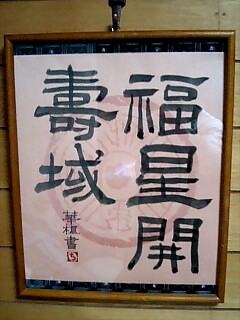 福星開
壽域
華楓書